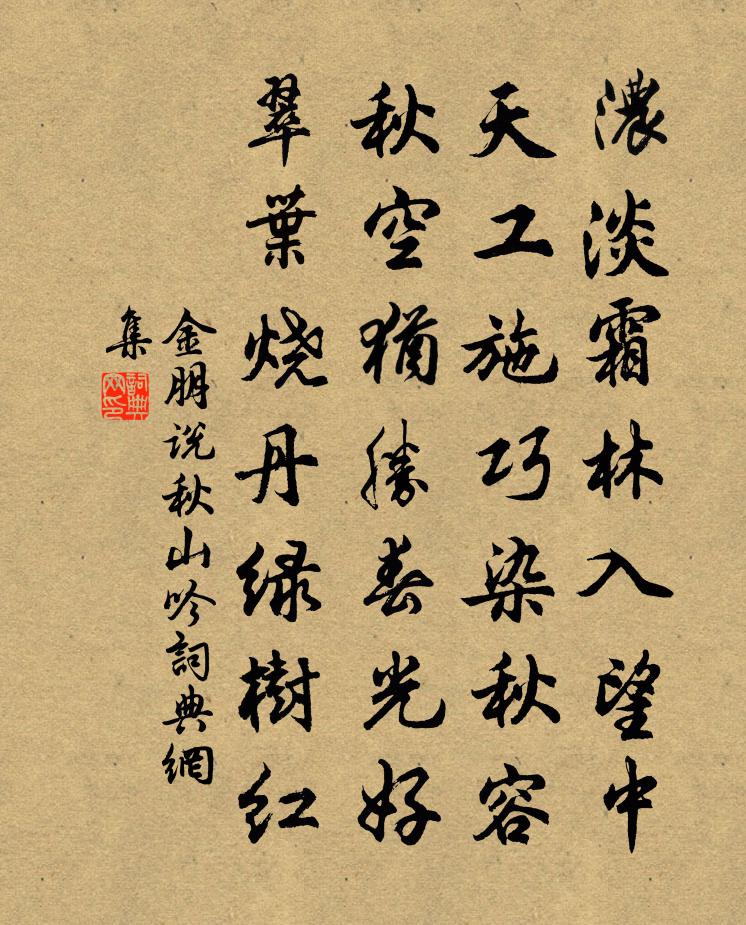 濃淡霜林入望中
天工施巧染秋容
秋空猶勝春光好
翠葉烧丹緑樹红
金朋说秋山吟詞典網
集
詞典
网印